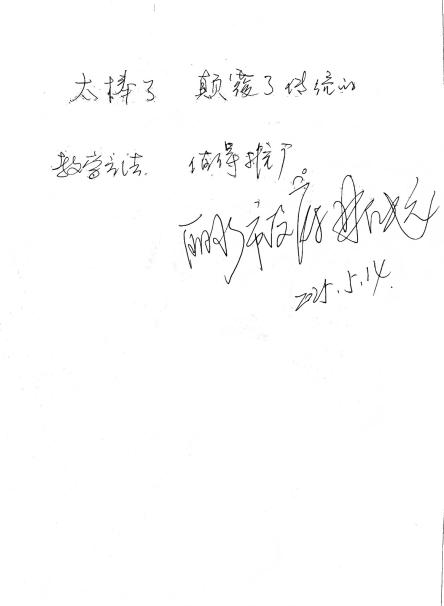 太棒了 颠覆了传统的
教学方法. 值得推广
丽水市
2025.5.14.